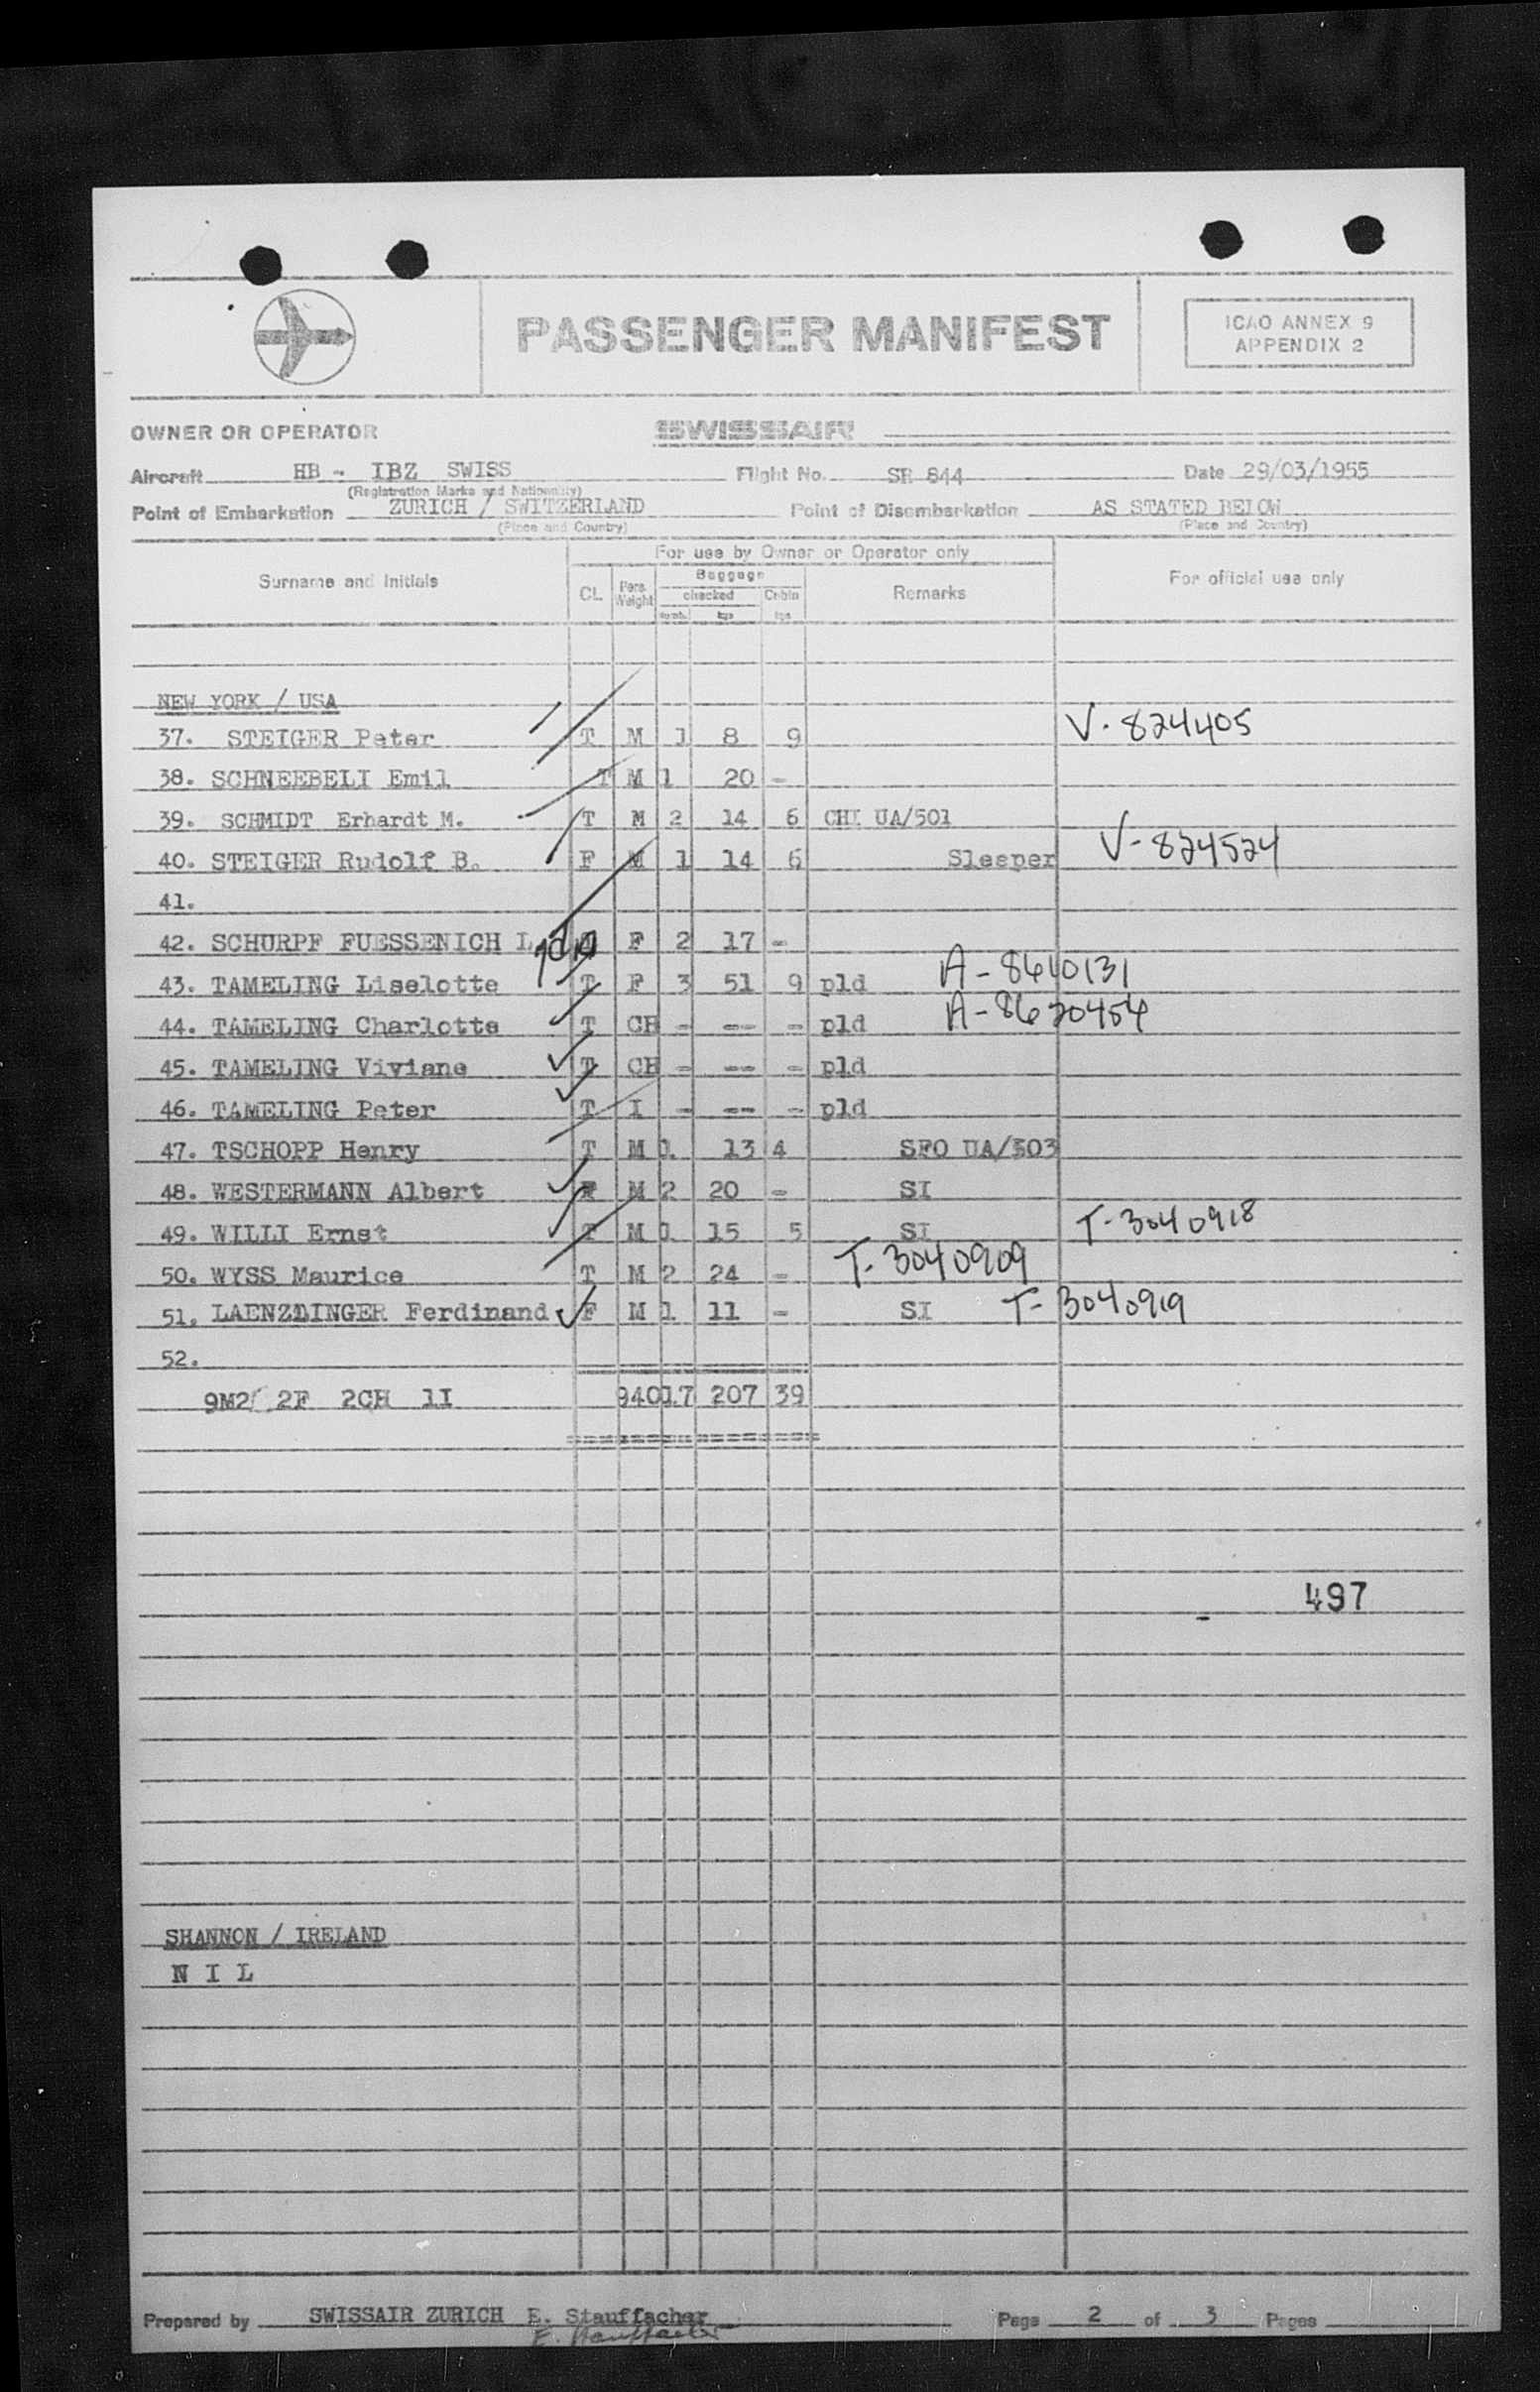 PASSENGER MANIFEST
ICAO ANNEX 9
APPENDIX 2
OWNER OR OPERATOR SWISSAIR
Aircraft HB - IBZ SWISS Flight No. SR 844 Date 29/03/1955
(Registration Marks and Nationality)
Point of Embarkation ZURICH / SWITZERLAND Point of Disembarkation AS STATED BELOW
(Place and Country) (Place and Country)
For use by Owner or Operator only
Surname and Initials CL. Pers. Weight Baggage checked numb. kgs Cabin kgs Remarks For official use only
NEW YORK / USA
37. STEIGER Peter T M 1 8 9 V-824405
38. SCHNEEBELI Emil T M 1 20 -
39. SCHMIDT Erhardt M. T M 2 14 6 CHI UA/501
40. STEIGER Rudolf B. F M 1 14 6 Sleeper V-824524
41.
42. SCHURPF FUESSENICH L F 2 17 -
43. TAMELING Liselotte T F 3 51 9 pld A-8640131
44. TAMELING Charlotte T CH - -- - pld A-8620454
45. TAMELING Viviane T CH - -- - pld
46. TAMELING Peter T I - -- - pld
47. TSCHOPP Henry T M 1 13 4 SFO UA/503
48. WESTERMANN Albert M 2 20 - SI
49. WILLI Ernst T M 1 15 5 SI T-3040918
50. WYSS Maurice T M 2 24 - T-3040909
51. LAENZLINGER Ferdinand F M 1 11 - SI T-3040919
52.
9M 2F 2CH 1I 940 17 207 39
497
SHANNON / IRELAND
N I L
Prepared by SWISSAIR ZURICH E. Stauffacher Page 2 of 3 Pages
E. Stauffacher